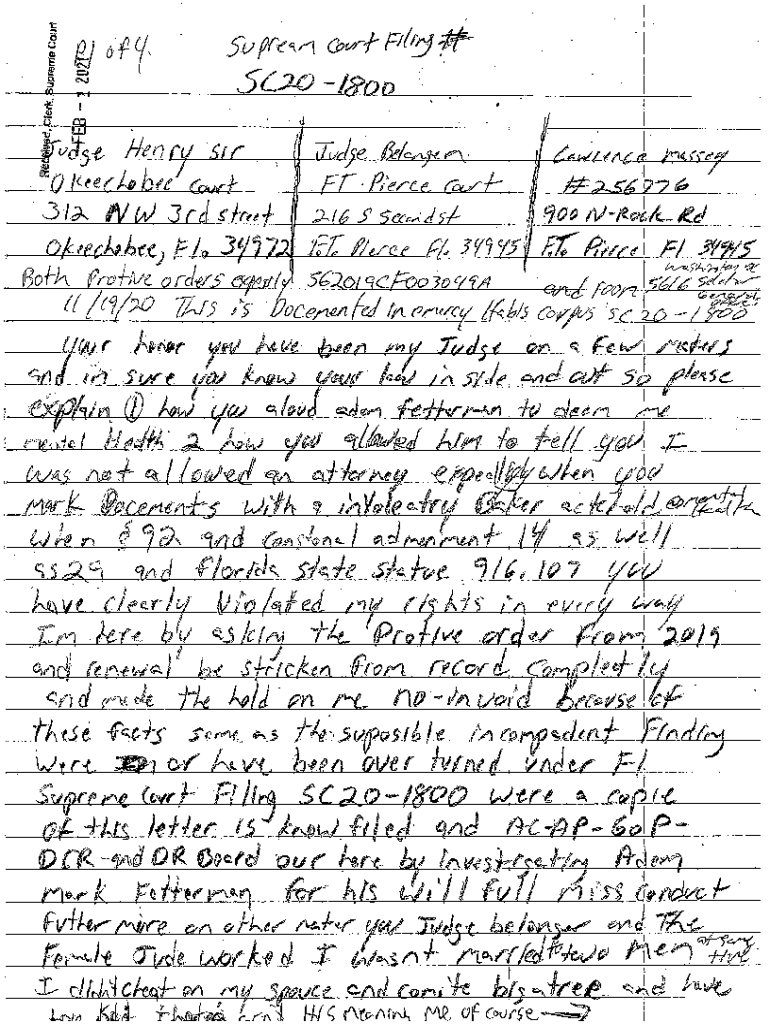 Received, Clerk, Supreme Court
FEB - 1 2021
P1 of 4.
Supream Court Filing #
SC20-1800
Judge Henry sir
Okeechobee court
312 NW 3rd street
Okeechobee, Fl. 34972
Judge Belangem
FT. Pierce court
216 S Second st
Ft. Pierce Fl. 34945
Lawrence Massey
#256776
900 N-Rock Rd
Ft. Pierce Fl 34945
Both Protive orders 562019CF003049A and room 5616 Washington DC
11/19/20 This is Docemented in Habis corpus SC20-1800
Your honor you have been my Judge on a few maters
and im sure you know your law in side and out so please
explain ① how you aloud adam fetterman to deem me
mental Health 2 how you allowed him to tell you I
was not allowed an attorney when you
mark Docements with a Baker
when § 92 and admenment 14 as well
as 29 and florida state statue 916.107 you
have clearly Violated my rights in every way
Im here by asking the Protive order From 2019
and renewal be stricken from record
and made the hold on me because of
these facts same as the suposible incompadent Finding
were or have been over turned under Fl
Supreme Court Filing SC20-1800 were a copie
of this letter is know filed and AC-AP-GOP-
DCR-and DR Board our here by Adam
mark Fetterman for his will full miss conduct
Futher more an other mater you Judge belanger and The
Female Jude worked I wasnt married to two men
I didnt cheat on my spouce and comite and have
His meaning me of course →